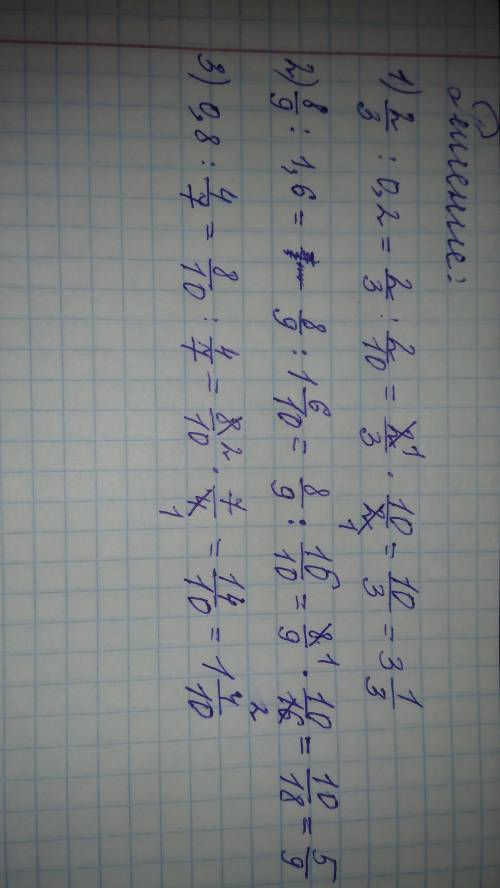 Решение:
1) 2/3 : 0,2 = 2/3 : 2/10 = 2/3 1 · 10/2 1 = 10/3 = 3 1/3
2) 8/9 : 1,6 = 8/9 : 1 6/10 = 8/9 : 16/10 = 8/9 1 · 10/16 2 = 10/18 = 5/9
3) 0,8 : 4/7 = 8/10 : 4/7 = 8/10 2 · 7/4 1 = 14/10 = 1 4/10